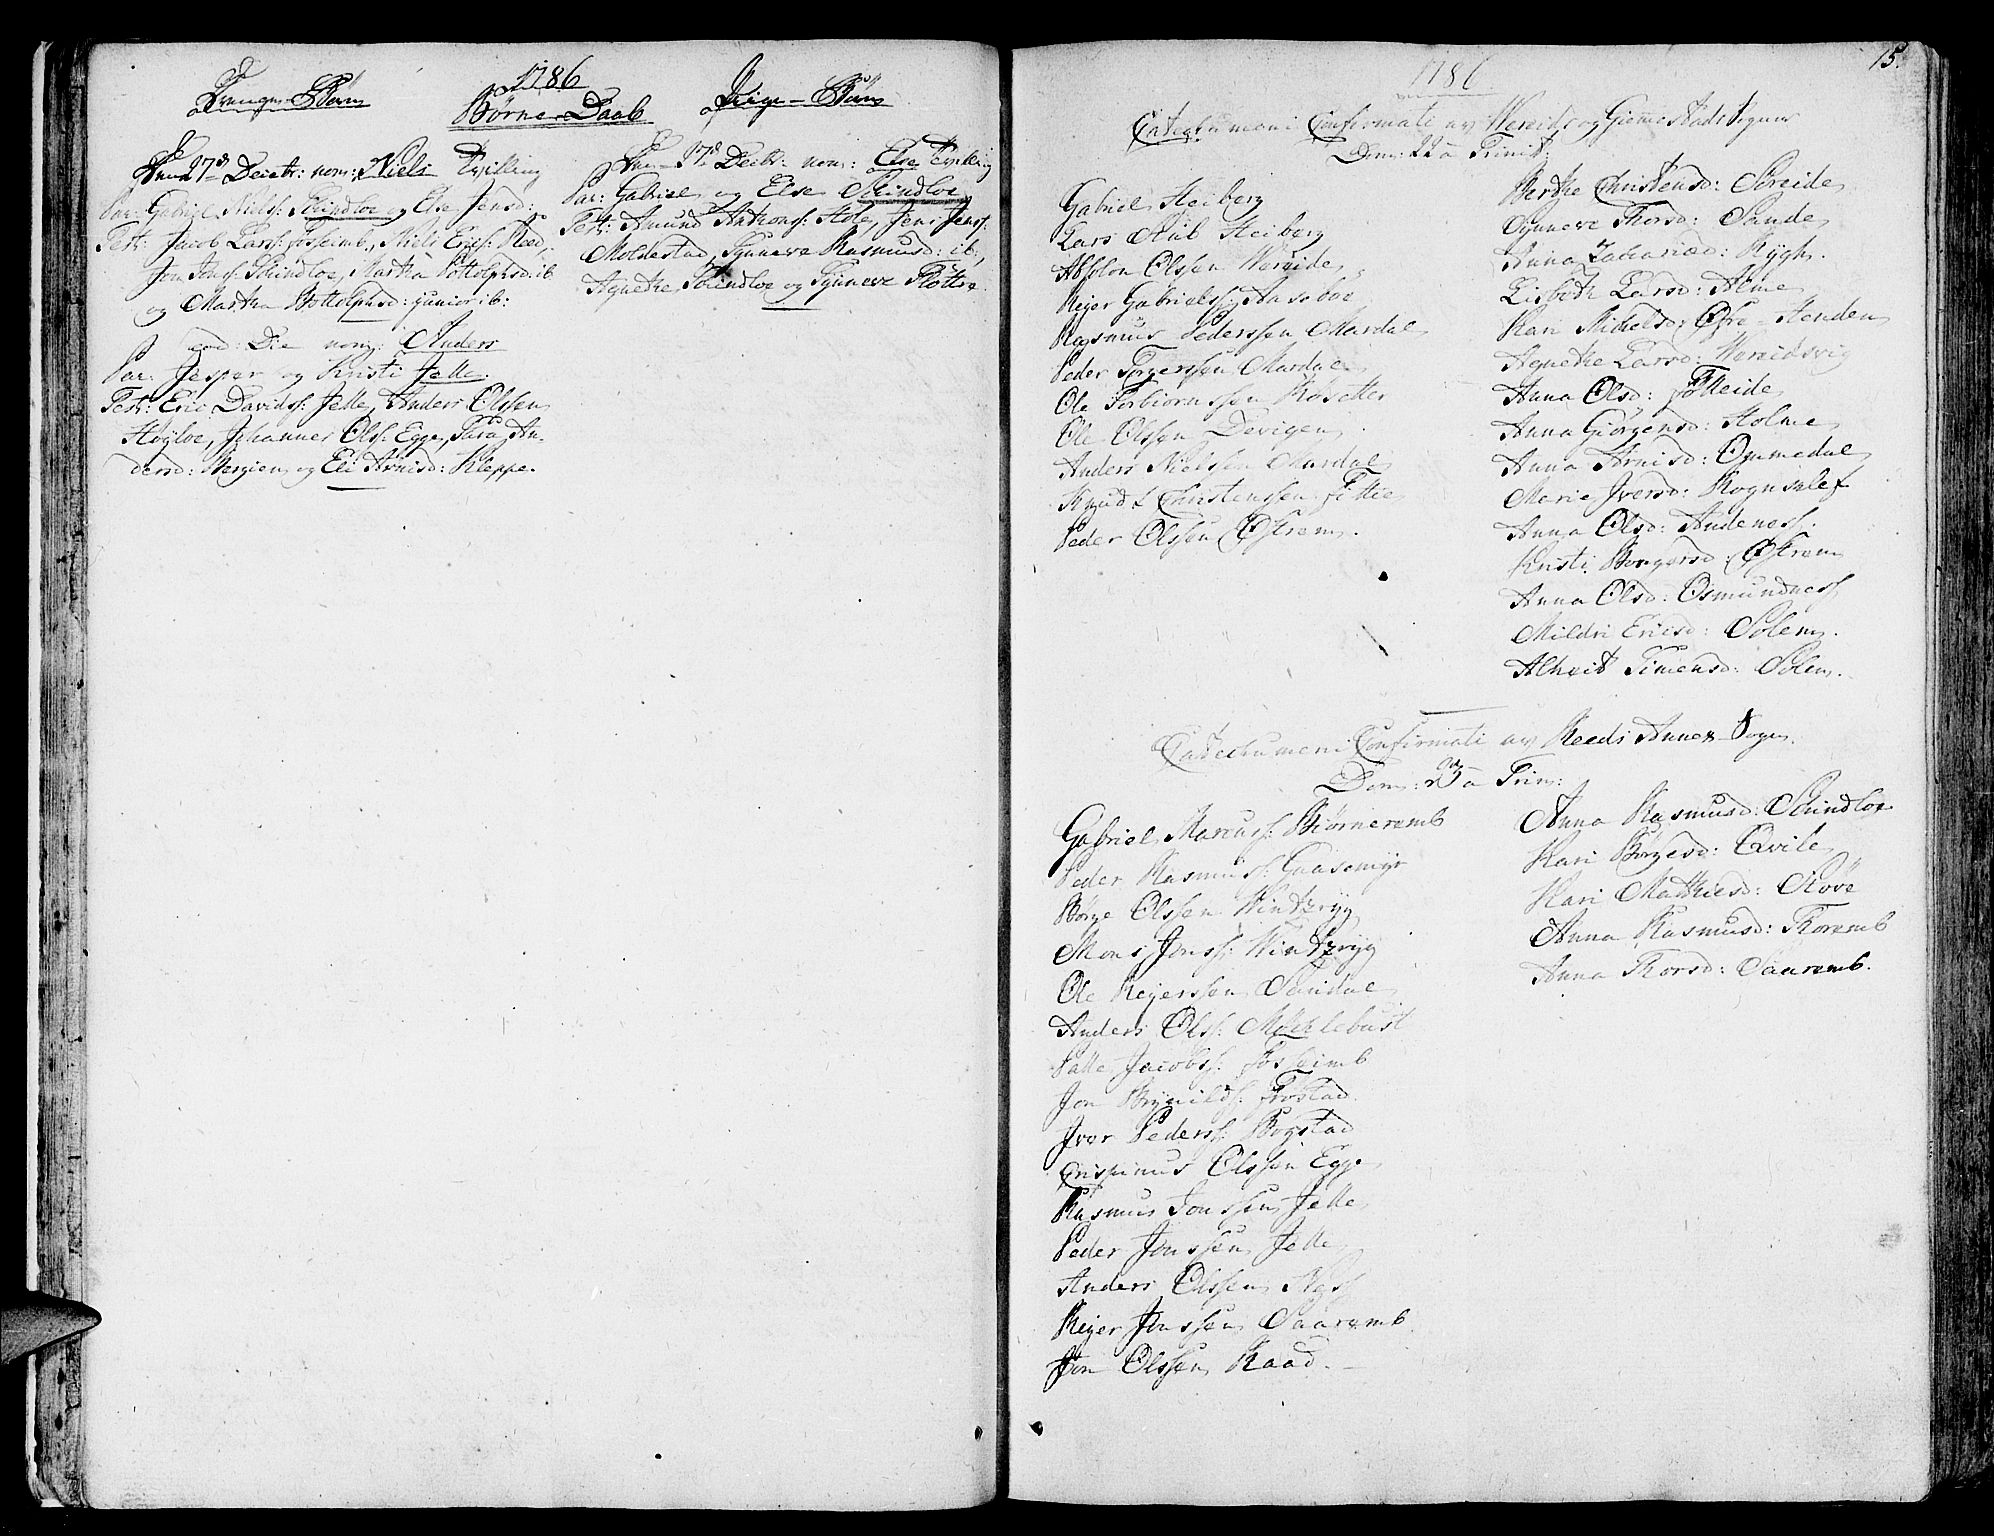 1786
Drenge-Børn
Børne-Daab
Pige-Børn
Den 27de Decbr: nom: Niels Tvilling
Par: Gabriel Nielss: Skindloe og Else Jensd:
Test: Jacob Larss: Fosseimb, Niels Ericss: Reed,
Jon Jonss: Skindloe, Martha Bottolphsd: ib
og Martha Bottolphsd: junior ib:
eod: Die nom: Anders
Par: Jesper og Kristi Jelle.
Test: Eric Davidss: Jelle, Anders Olssen
Høyloe, Johannes Olss: Egge, Sara An-
dersd: Bergien og Eli Arnisd: Kleppe.
Den 27de Decbr: nom: Else Tvilling
Par: Gabriel og Else Skindloe
Test: Amund Anthonss: Hole, Jens Jenss:
Moldestad, Synneve Rasmusd: ib:,
Agnethe Skindloe og Synneve Fløtte.
15.
1786
Catechumeni Confirmati av Wereids og Giemestads Sogner
Dom: 22a Trinit:
Gabriel Heiberg
Lars Heiberg
Absolon Olssen Wereide
Reyer Gabrielss: Aaseboe
Rasmus Pederssen Mardal
Peder Torgerssen Mardal
Ole Torbiørnssen Røsetter
Ole Olssen Devigen
Anders Nielssen Mardal
Knud Christenssen Fittie
Peder Olssen Østrem.
Berthe Christensd: Søreide
Synneve Thorsd: Sande
Anna Zachariæd: Rygh.
Lisbeth Larsd: Alme
Kari Michelsd: Øfre-Henden
Agnethe Larsd: Wereidsvig
Anna Olsd: Fotteide
Anna Giørgensd: Holme
Anna Arnisd: Ommedal
Marie Iversd: Rognkløf
Anna Olsd: Andeness.
Kristi Borgersd: Østrem
Anna Olsd: Osmundness
Mildri Ericsd: Solem.
Alheit Simensd: Solem.
Catechumeni Confirmati av Reeds Annex-Sogn.
Dom: 23a Trin:
Gabriel Marcuss: Biørneremb
Peder Rasmuss: Gaasemyr
Børge Olssen Windtzryg
Mons Jonss: Windtzryg
Ole Reyerssen Sandal
Anders Olss: Mycklebust
Palle Jacobss: Fosseimb
Jon Brynildss: Frøstad
Iver Pederss: Bogstad
Crispinus Olssen Egge
Rasmus Jonssen Jelle
Peder Jonssen Jelle
Anders Olssen Ness
Reyer Jonssen Saaremb
Jon Olssen Raad.
Anna Rasmusd: Skindloe
Kari Børgesd: Qvile
Kari Mathiesd: Støve
Anna Rasmusd: Thoremb
Anna Thorsd: Saaremb.